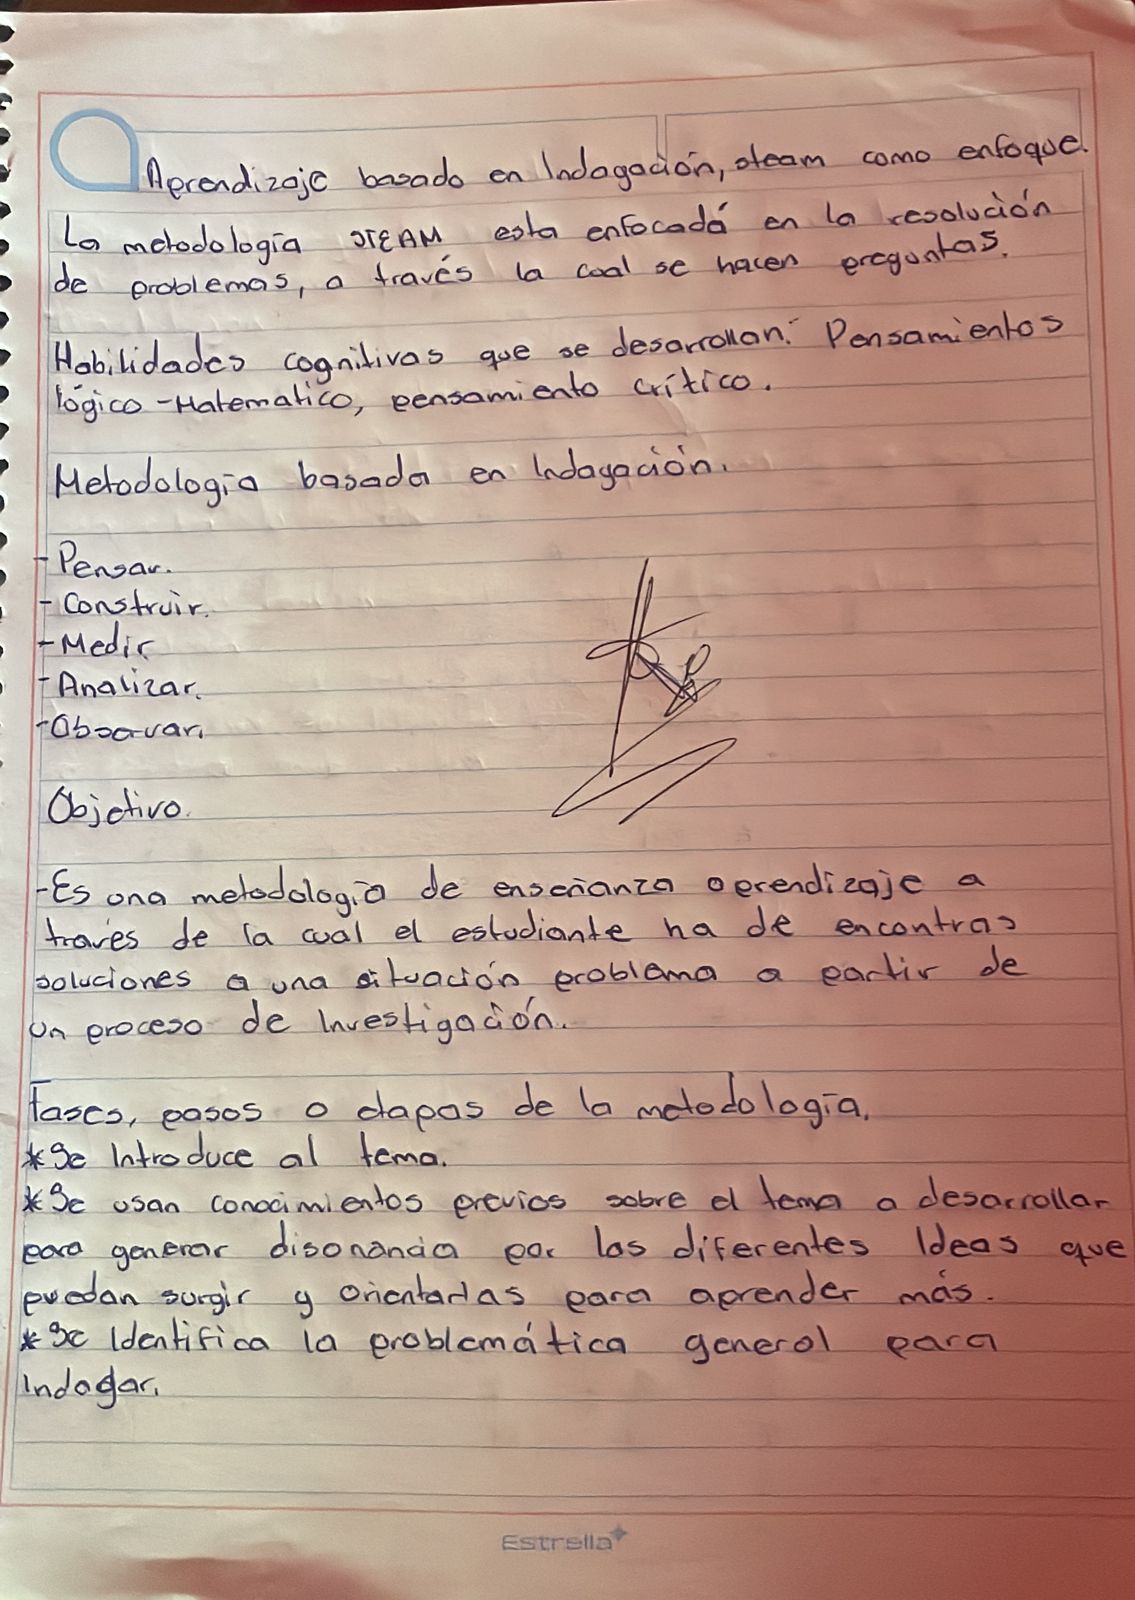 Aprendizaje basado en Indagación, steam como enfoque.
La metodología STEAM esta enfocadá en la resolución
de problemas, a través la cual se hacen preguntas.
Habilidades cognitivas que se desarrollan: Pensamientos
lógico-Matematico, pensamiento crítico.
Metodología basada en Indagación.
-Pensar.
-Construir.
-Medir
-Analizar.
-Observar.
Objetivo.
-Es una metodología de enseñanza aprendizaje a
través de la cual el estudiante ha de encontras
soluciones a una situación problema a partir de
un proceso de Investigación.
Fases, pasos o etapas de la metodología.
*Se Introduce al tema.
*Se usan conocimientos previos sobre el tema a desarrollar
para generar disonancia por las diferentes Ideas que
puedan surgir y orientarlas para aprender más.
*Se Identifica la problemática general para
Indagar.
Estrella